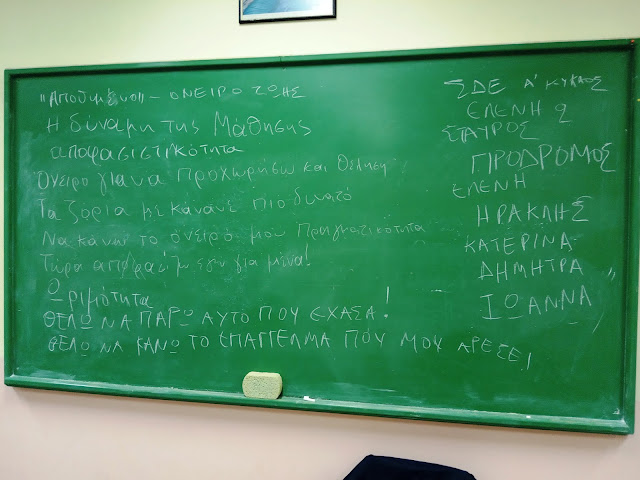 "Απωθημένο" - ΟΝΕΙΡΟ ΖΩΗΣ
Η δύναμη της Μάθησης
αποφασιστικότητα
Όνειρο για να προχωρήσω και θέληση
Τα ζόρια με κάνανε πιο δυνατό
Να κάνω το όνειρό μου πραγματικότητα
Τώρα αποφασίζω εγώ για μένα!
Ωριμότητα
ΘΕΛΩ ΝΑ ΠΑΡΩ ΑΥΤΟ ΠΟΥ ΕΧΑΣΑ!
ΘΕΛΩ ΝΑ ΚΑΝΩ ΤΟ ΕΠΑΓΓΕΛΜΑ ΠΟΥ ΜΟΥ ΑΡΕΣΕΙ
ΣΔΕ Α' ΚΥΚΛΟΣ
ΕΛΕΝΗ 2
ΣΤΑΥΡΟΣ
ΠΡΟΔΡΟΜΟΣ
ΕΛΕΝΗ
ΗΡΑΚΛΗΣ
ΚΑΤΕΡΙΝΑ
ΔΗΜΗΤΡΑ
ΙΩΑΝΝΑ